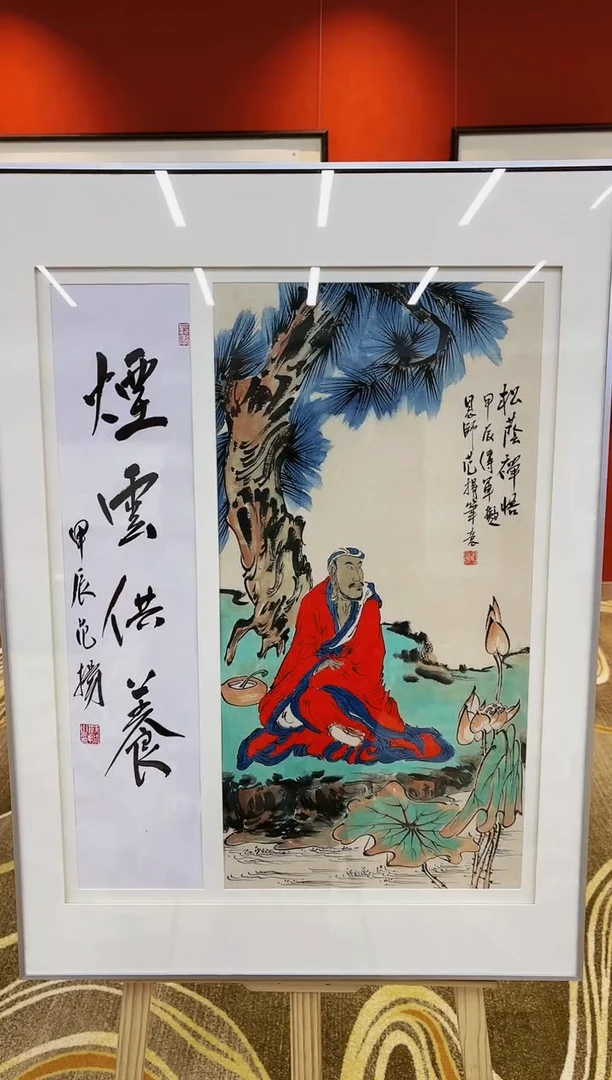 煙雲供養
甲辰范揚
松蔭禪悟
甲辰軍擬
恩師范揚筆意